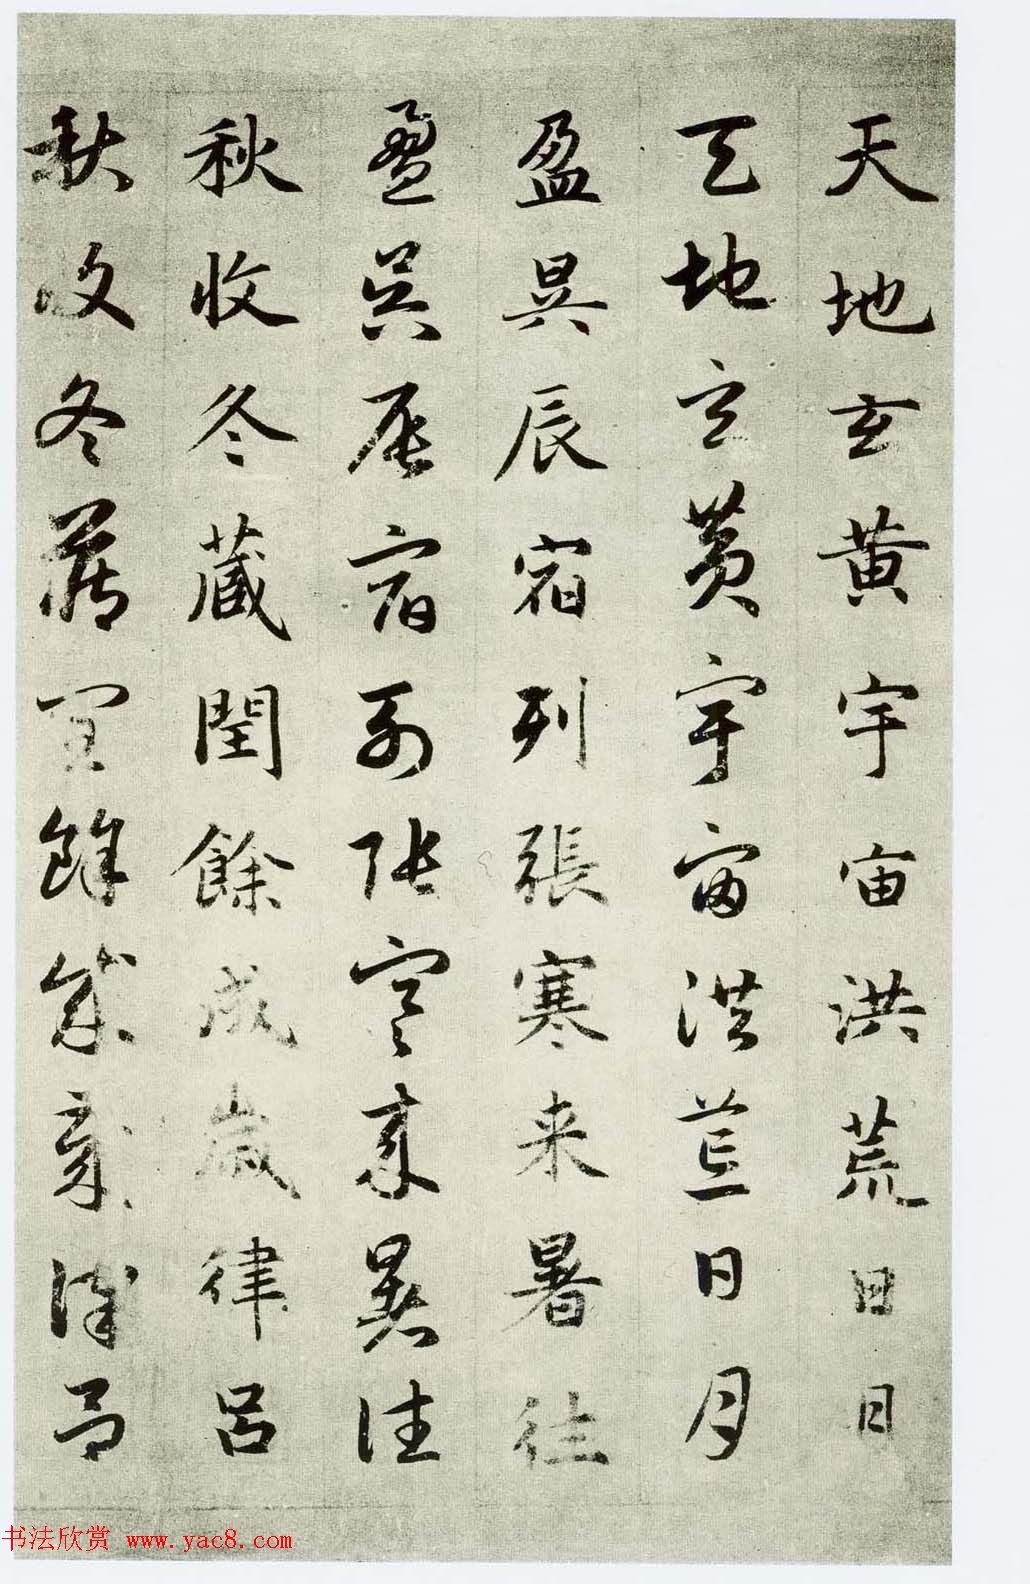 天地玄黄宇宙洪荒日日
天地玄黄宇宙洪荒日月
盈昃辰宿列張寒来暑往
盈昃辰宿列張寒来暑往
秋收冬藏閏餘成歲律呂
秋收冬藏閏餘成歲律呂
书法欣赏 www.yac8.com